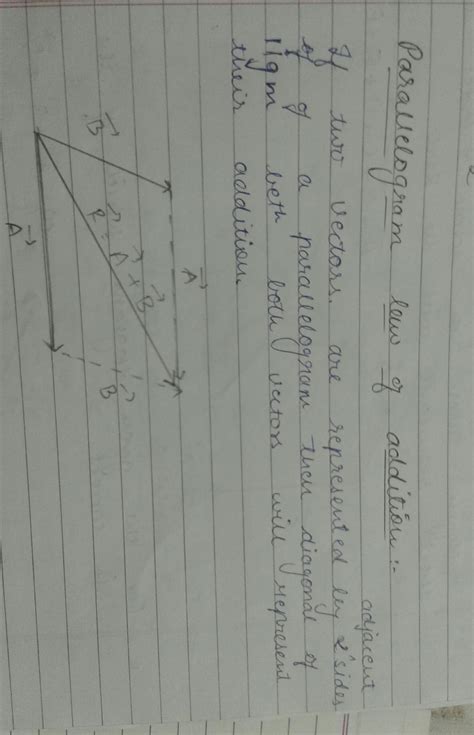 Parallelogram law of addition :-
adjacent
If two vectors are represented by 2 sides
of of a parallelogram then diagonal of
11gm beth both vectors will represent
their addition.
A
B
R = A + B
B
A